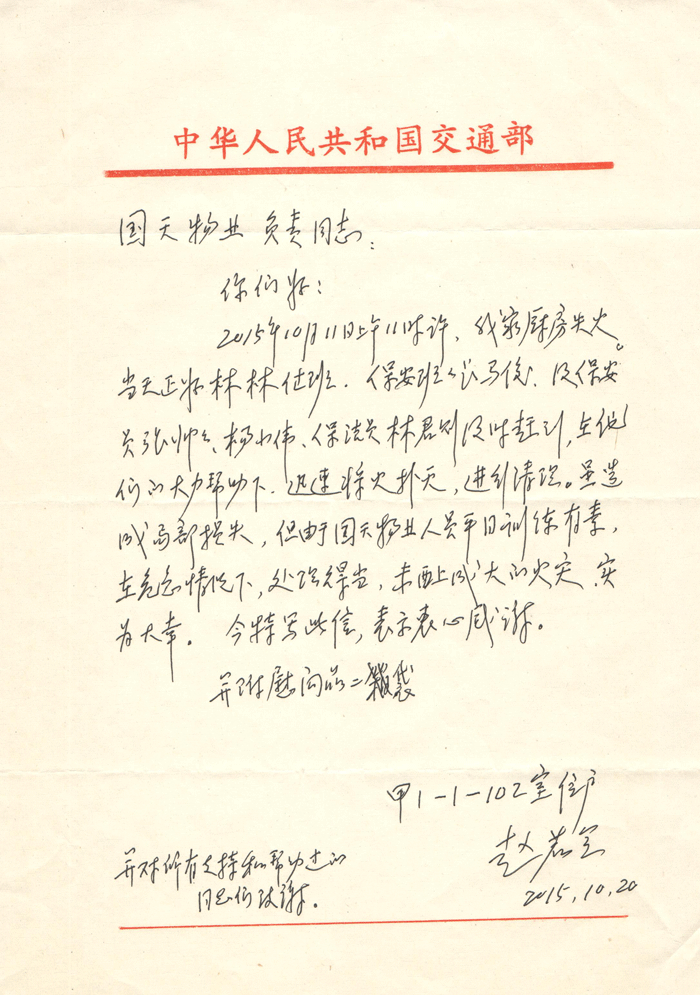 中华人民共和国交通部
国天物业 负责同志:
你们好:
2015年10月11日上午11时许,我家厨房失火。
当天正好林林值班.保安班长马俊、及保安
员张帅、杨小伟、保洁员林君则及时赶到,在他
们的大力帮助下.迅速将火扑灭,进行清理。虽造
成局部损失,但由于国天物业人员平日训练有素,
在危急情况下,处理得当,未酿成大的火灾,实
为大幸。 今特写此信,表示衷心感谢。
并附慰问品二袋
甲1-1-102室住户
赵
2015.10.20
并对所有支持和帮助过的
同志们致谢。